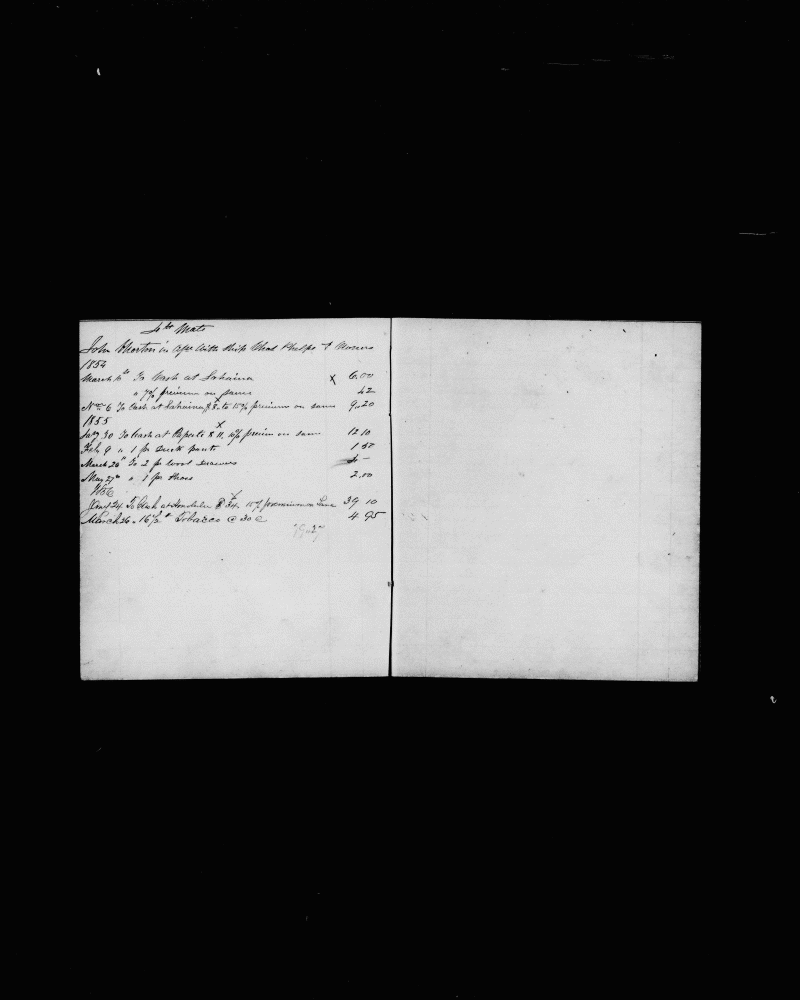 4th Mate
John Morton in a/c with Ship Chas Phelps & Owners
1854
March 10th To Cash at Lahaina X 6.00
" 7% premium on same 42
Nov 6 To Cash at Lahaina $8. to 15% premium on same 9.20
X
1855
Jany 30 To Cash at $ 11. 10% premium on same 12 10
Feb 9 " 1 pr duck pants 1 50
March 20th To 2 pr wool drawers
May 27th " 1 pr shoes 2.00
1856
X
24 To Cash at Honolulu $ 34. 15% premium on same 39 10
March 26 " 16 1/2 lb Tobacco @ 30 c 4.95